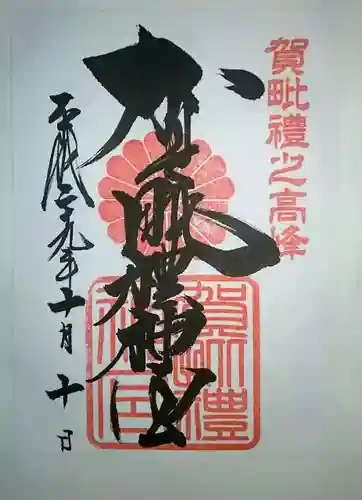 賀毗禮之高峰
賀毗禮神宮
平成二十九年十月十日